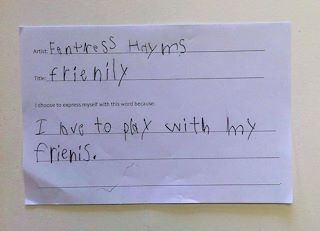 Artist: Fentress Hayms
Title: frienily
I choose to express myself with this word because:
I ove to play with my
frienis.